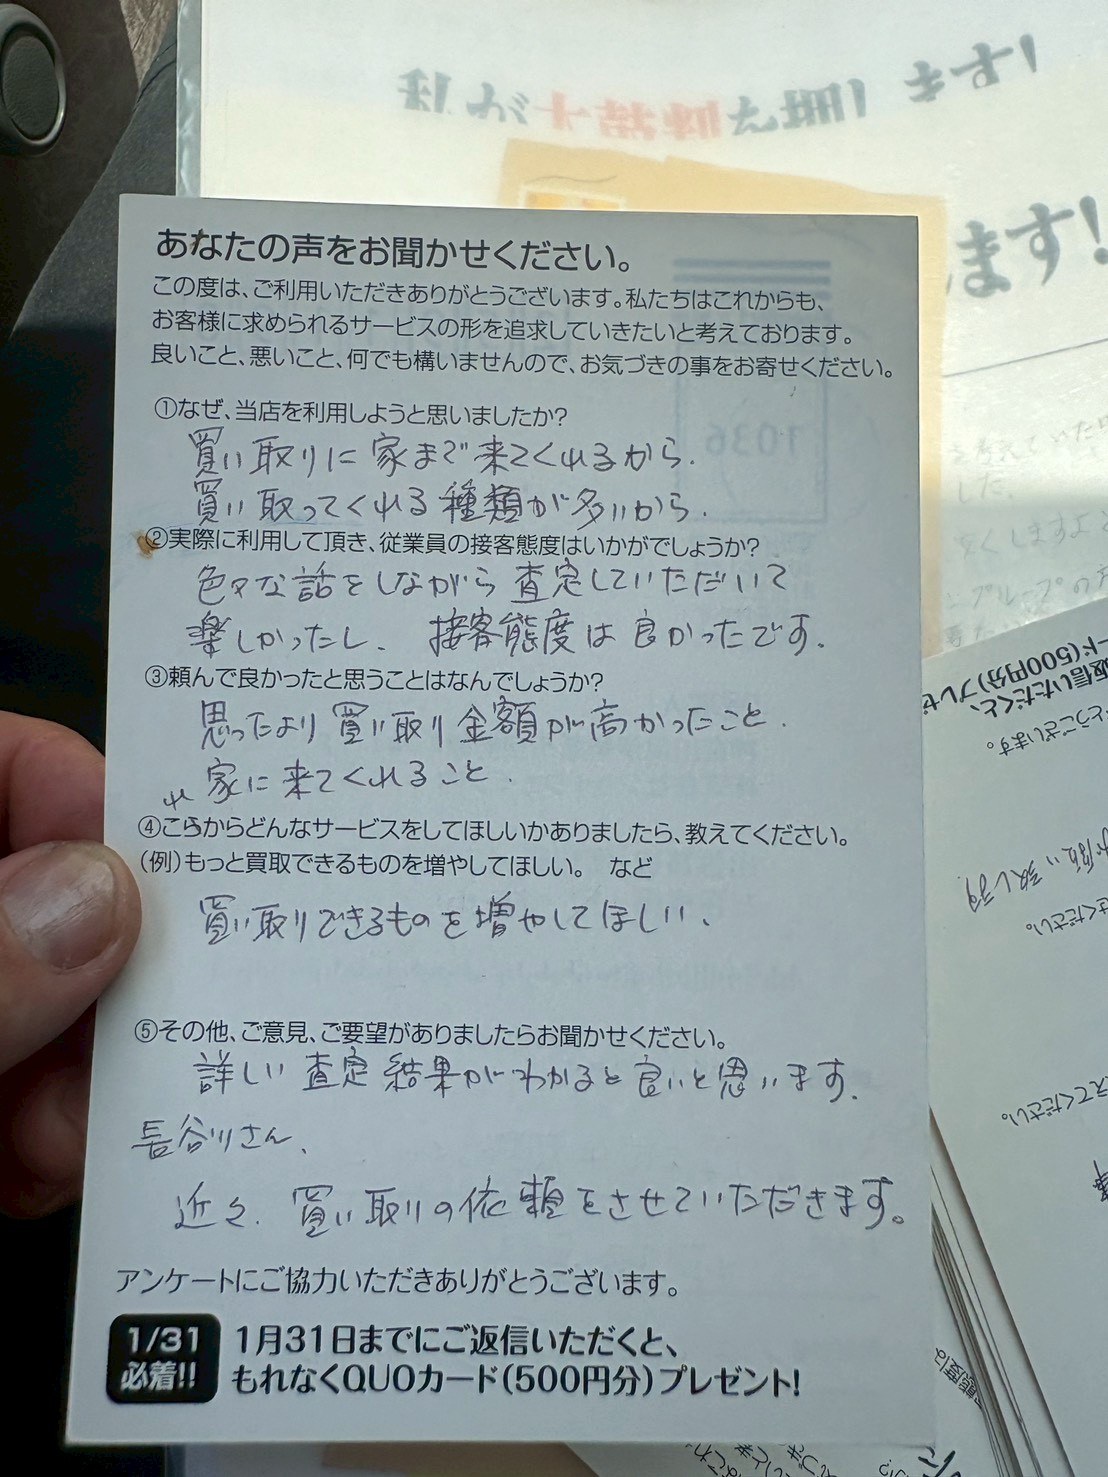 私が大替え買います!
ます!
あなたの声をお聞かせください。
この度は、ご利用いただきありがとうございます。私たちはこれからも、
お客様に求められるサービスの形を追求していきたいと考えております。
良いこと、悪いこと、何でも構いませんので、お気づきの事をお寄せください。
①なぜ、当店を利用しようと思いましたか?
買い取りに家まで来てくれるから.
買い取ってくれる種類が多いから.
②実際に利用して頂き、従業員の接客態度はいかがでしょうか?
色々な話をしながら査定していただいて
楽しかったし、接客態度は良かったです.
③頼んで良かったと思うことはなんでしょうか?
思ったより買い取り金額が高かったこと.
家に来てくれること.
れ
④こらからどんなサービスをしてほしいかありましたら、教えてください。
(例)もっと買取できるものを増やしてほしい。 など
買い取りできるものを増やしてほしい、
⑤その他、ご意見、ご要望がありましたらお聞かせください。
詳しい査定結果がわかると良いと思います.
長谷川さん、
近々、買い取りの依頼をさせていただきます。
アンケートにご協力いただきありがとうございます。
1/31
必着!!
1月31日までにご返信いただくと、
もれなくQUOカード(500円分)プレゼント!